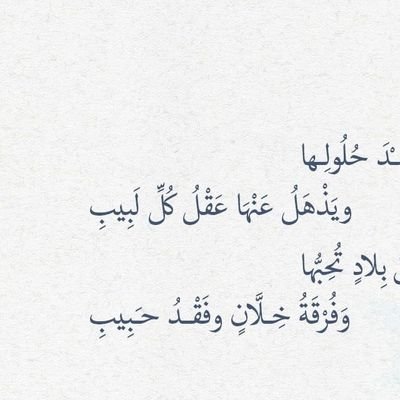 حُلُولِـها
ويَذْهَلُ عَنْهَا عَقْلُ كُلِّ لَبِيبِ
بِلادٍ تُحِبُّها
وَفُرْقَةُ خِـلَّانٍ وفَقْـدُ حـَبِيبِ